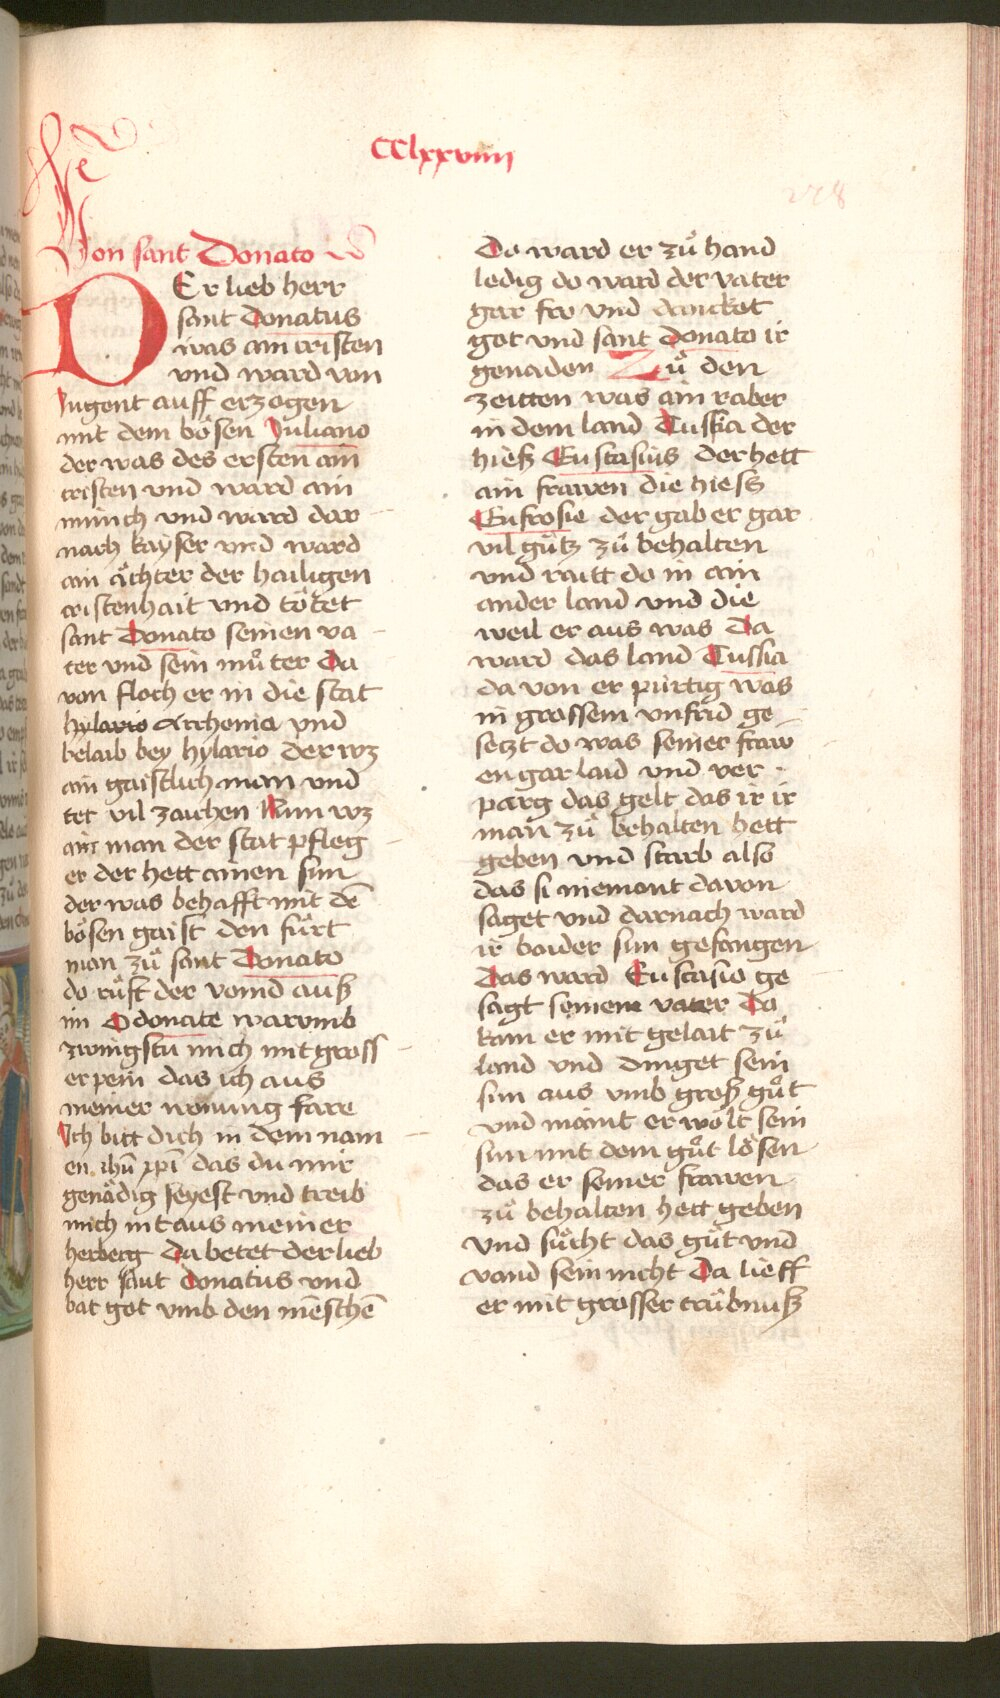 CClxxviiij
278
Von sant Donato
DEr lieb herr
sant Donatus
was ain cristen
vnd ward von
Jugent auff erzogen
mit dem bösen Juliano
der was des ersten ain
cristen vnd ward ain
münch vnd ward dar
nach kayser vnd ward
ain ächter der hailigen
cristenhait vnd tötet
sant Donato seinen va
ter vnd sein můter Da
von floch er in die stat
hylario Archenia vnd
belaib bey hylario der wz
ain gaistlich man vnd
tet vil zaichen Nun wz
ain man der stat pfleg
er der hett ainen sun
der was behafft mit dē
bösen gaist den fůrt
man zů sant Donato
do růft der veind auß
im O donate warumb
zwingstu mich mit gross
er pein das ich aus
meiner wonung fare
Ich bitt dich in dem nam
en ihū xpī das du mir
genädig seyest vnd treib
mich nit aus meiner
herberg Da betet der lieb
herr sant Donatus vnd
bat got vmb den mēschē
Do ward er zů hand
ledig do ward der vater
gar fro vnd dancket
got vnd sant Donato ir
genaden Zů den
zeitten was ain raber
in dem land Tuskia der
hieß Eustasius der hett
ain frawen die hiesß
Eufrosie der gab er gar
vil gůtz zů behalten
vnd raitt do in ain
ander land vnd die
weil er aus was Da
ward das land Tussia
da von er pürtig was
in grossem vnfrid ge
setzt do was seiner fraw
en gar laid vnd ver
parg das gelt das ir ir
man zů behalten hett
geben vnd starb also
das si niemont davon
saget vnd darnach ward
ir baider sun gefangen
Das ward Eustasio ge
sagt seinem vater Do
kam er mit gelait zů
land vnd dinget sein
sun aus vmb groß gůt
vnd maint er wolt sein
sun mit dem gůt lösen
das er seiner frawen
zů behalten hett geben
vnd sůcht das gůt vnd
vand sein nicht Da lieff
er mit grosser trübnuß